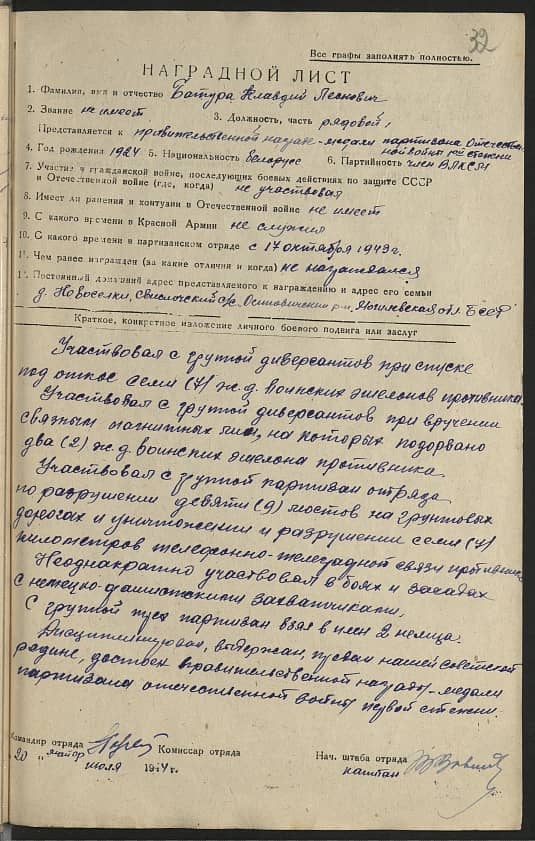 32
Все графы заполнять полностью.
НАГРАДНОЙ ЛИСТ
1. Фамилия, имя и отчество Батура Клавдий Лескович
2. Звание не имеет 3. Должность, часть рядовой,
Представляется к правительственной награде-медали партизана Отечествен-
ной войны 1ой степени
4. Год рождения 1924 5. Национальность белорус 6. Партийность член ВЛКСМ
7. Участие в гражданской войне, последующих боевых действиях по защите СССР
и Отечественной войне (где, когда) не участвовал
8. Имеет ли ранения и контузии в Отечественной войне не имеет
9. С какого времени в Красной Армии не служил
10. С какого времени в партизанском отряде с 17 октября 1943 г.
11. Чем ранее награжден (за какие отличия и когда) не награждался
12. Постоянный домашний адрес представляемого к награждению и адрес его семьи
д. Новоселки, Свислочский с/с, Осиповичский р-н, Могилевская обл. БССР
Краткое, конкретное изложение личного боевого подвига или заслуг
Участвовал с группой диверсантов при спуске
под откос семи (7) ж.д. воинских эшелонов противника.
Участвовал с группой диверсантов при вручении
связным магнитных мин, на которых подорвано
два (2) ж.д. воинских эшелона противника.
Участвовал с группой партизан отряда
по разрушении девяти (9) мостов на грунтовых
дорогах и уничтожении и разрушении семи (7)
километров телефонно-телеграфной связи противника.
Неоднократно участвовал в боях и засадах
с немецко-фашистскими захватчиками.
С группой партизан взял в плен 2 немца.
Дисциплинирован, выдержан, предан нашей советской
родине, достоен правительственной награды-медали
партизана отечественной войны первой степени.
Командир отряда Комиссар отряда Нач. штаба отряда
майор капитан
"20" июля 1944 г.